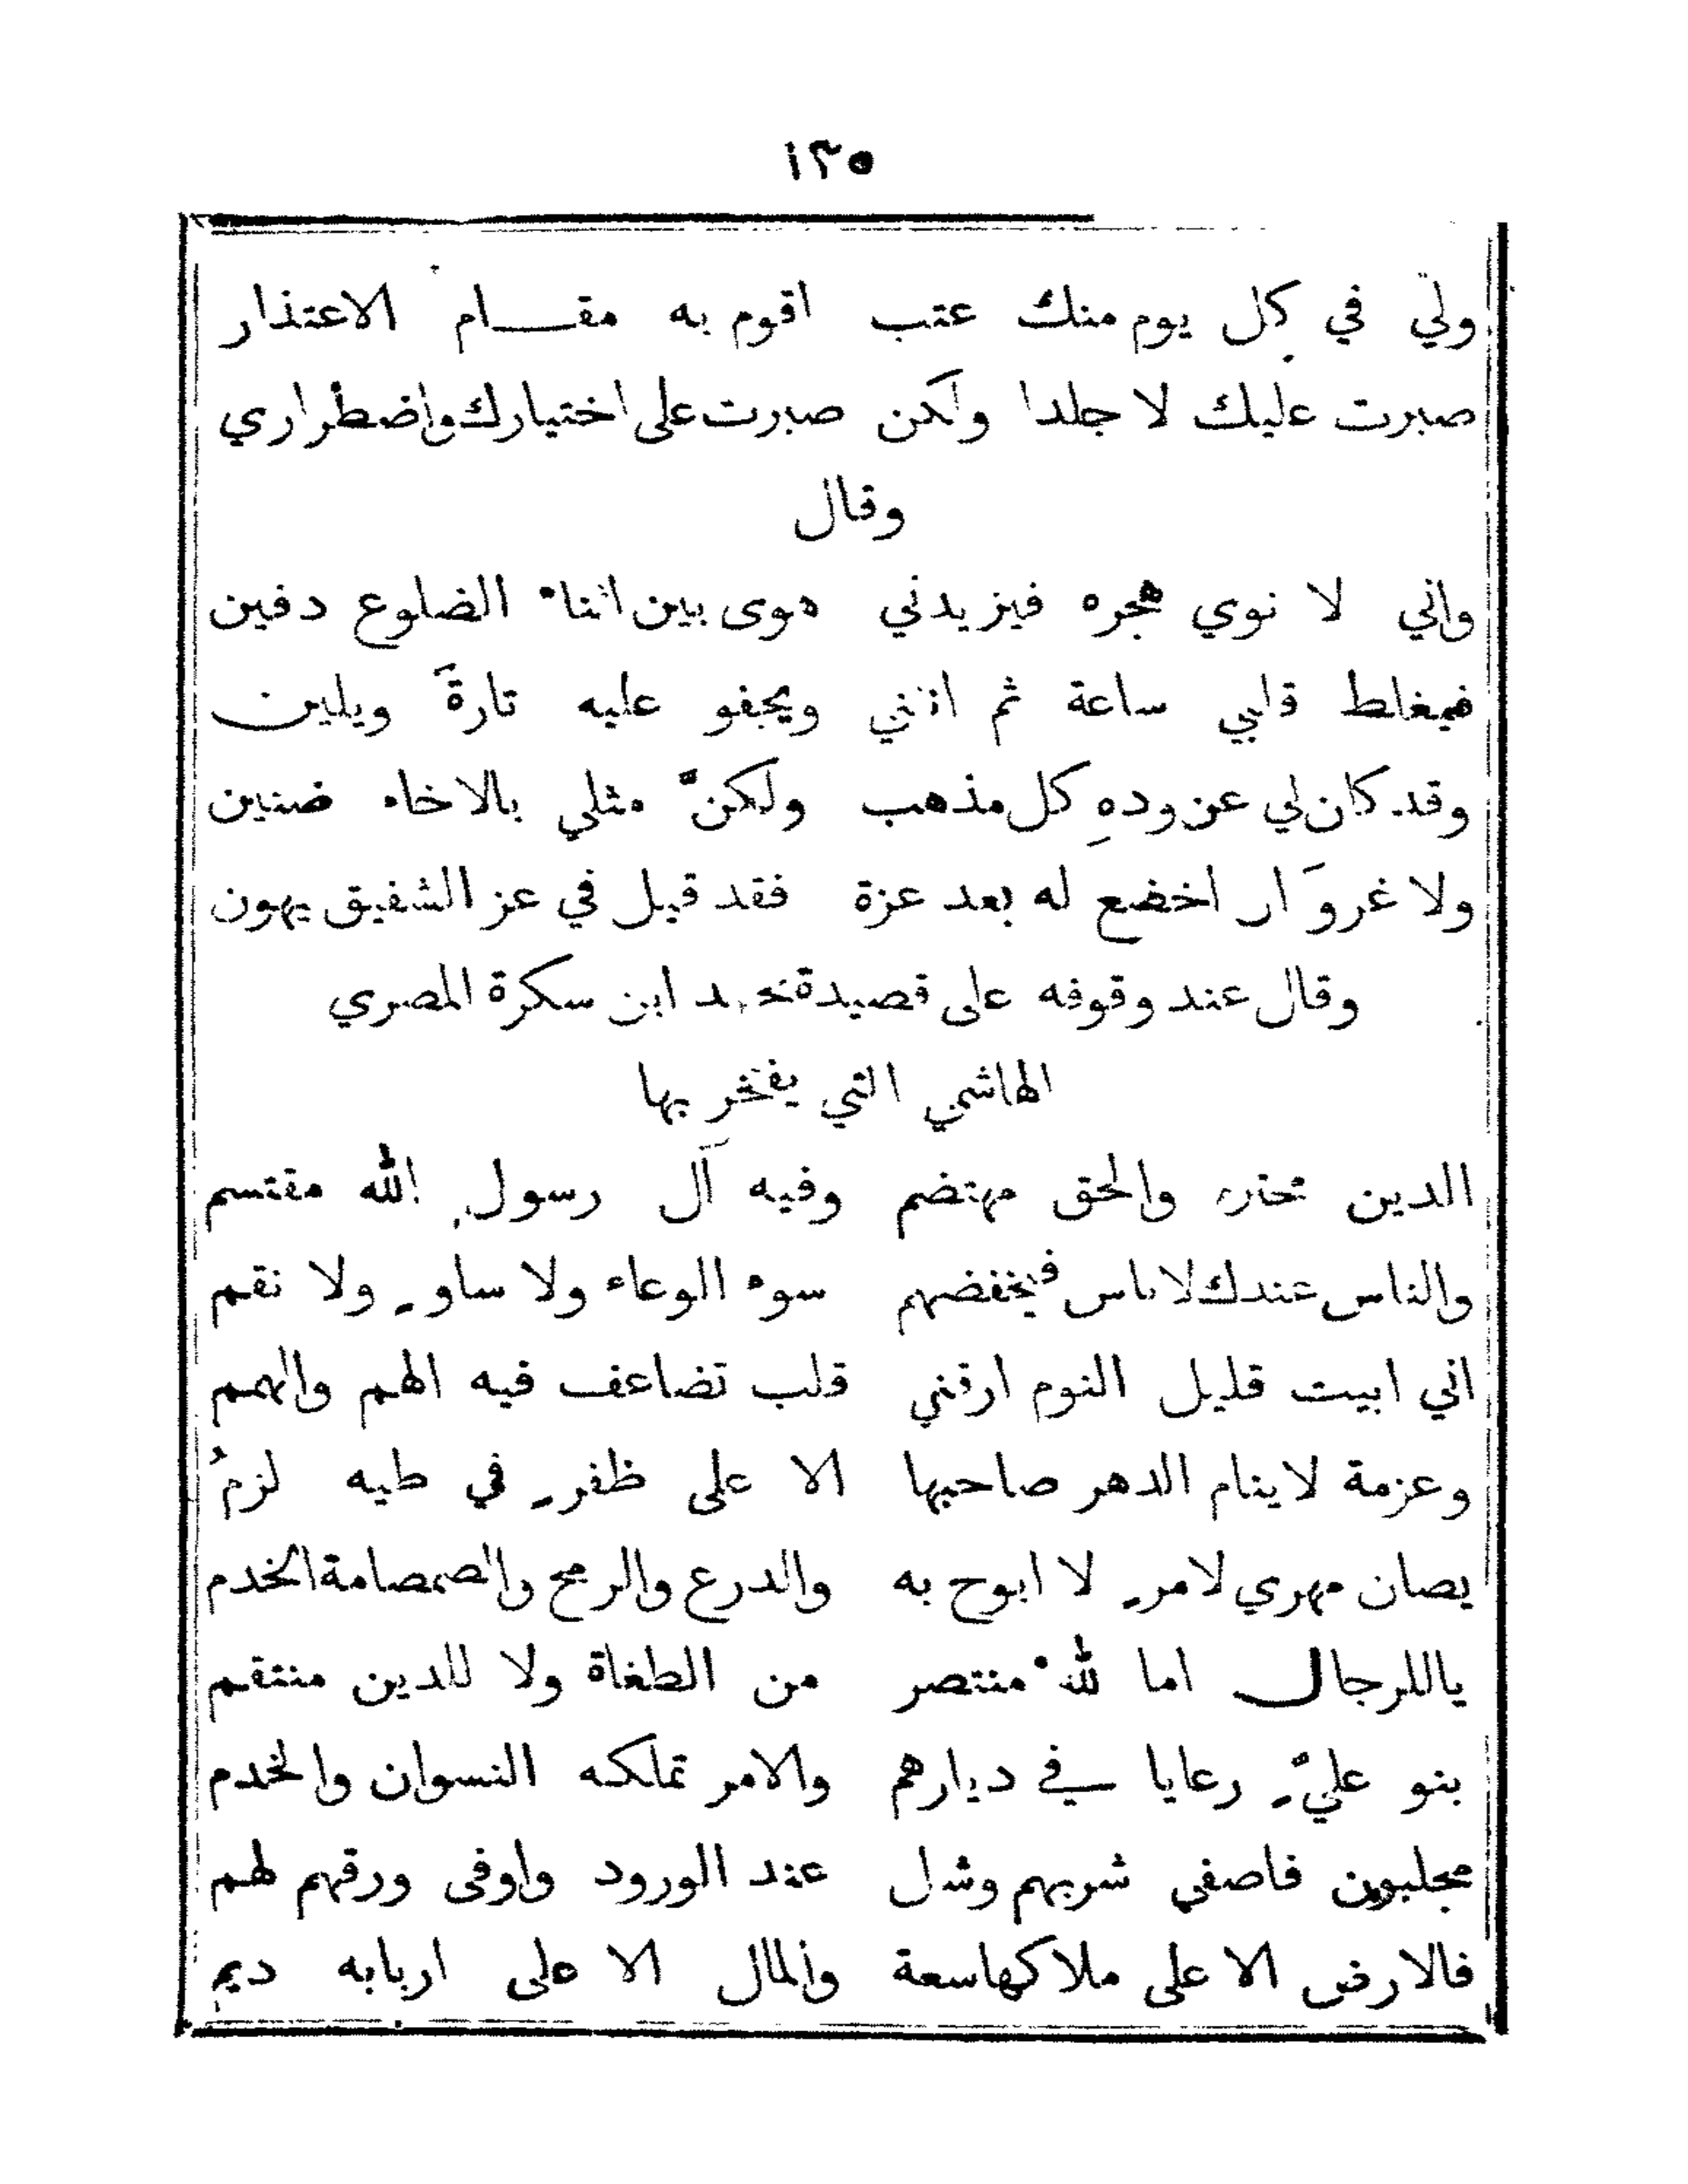 ١٣٥
ولي في كل يوم منك عتب اقوم به مقـــام الاعتذار
صبرت عليك لا جلدا ولكن صبرت على اختيارك واضطراري
وقال
واني لا نوي هجره فيزيدني هوى بين اثناء الضلوع دفين
فيغلط قلبي ساعة ثم انثني ويجفو عليه تارةً ويلين
وقد كان لي عن ودهِ كل مذهب ولكنَّ مثلي بالاخاء ضنين
ولا غروَ ان اخضع له بعد عزة فقد قيل في عز الشفيق يهون
وقال عند وقوفه على قصيدة محمد ابن سكرة المصري
الهاشمي التي يفتخر بها
الدين مخترم والحق مهتضم وفيه آل رسول الله مقتسم
والناس عندك لا ناس فيخفضهم سوء الوعاء ولا ساوٍ ولا نقم
اني ابيت قليل النوم ارقني قلب تضاعف فيه الهم والهمم
وعزمة لا ينام الدهر صاحبها الا على ظفرٍ في طيه لزمُ
يصان مهري لامرٍ لا ابوح به والدرع والرمح والصمصامة الخدم
ياللرجال اما لله منتصر من الطغاة ولا للدين منتقم
بنو عليٍّ رعايا في ديارهم والامر تملكه النسوان والخدم
مجلبون فاصفي شربهم وشل عند الورود واوفى ورقهم لهم
فالارض الا على ملاكها سعة والمال الا على اربابه ديم